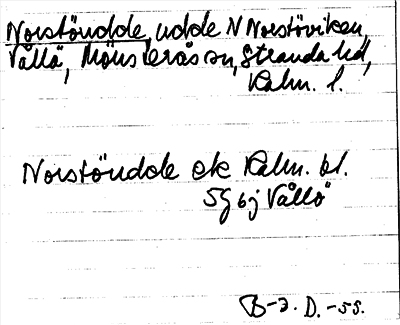 Norstöudde, udde N Norstöviken,
Vållö, Mönsterås sn, Stranda hd,
Kalm. l.
Norstöudde ek Kalm. bl.
5G 6j Vållö
B-a. D. -55.